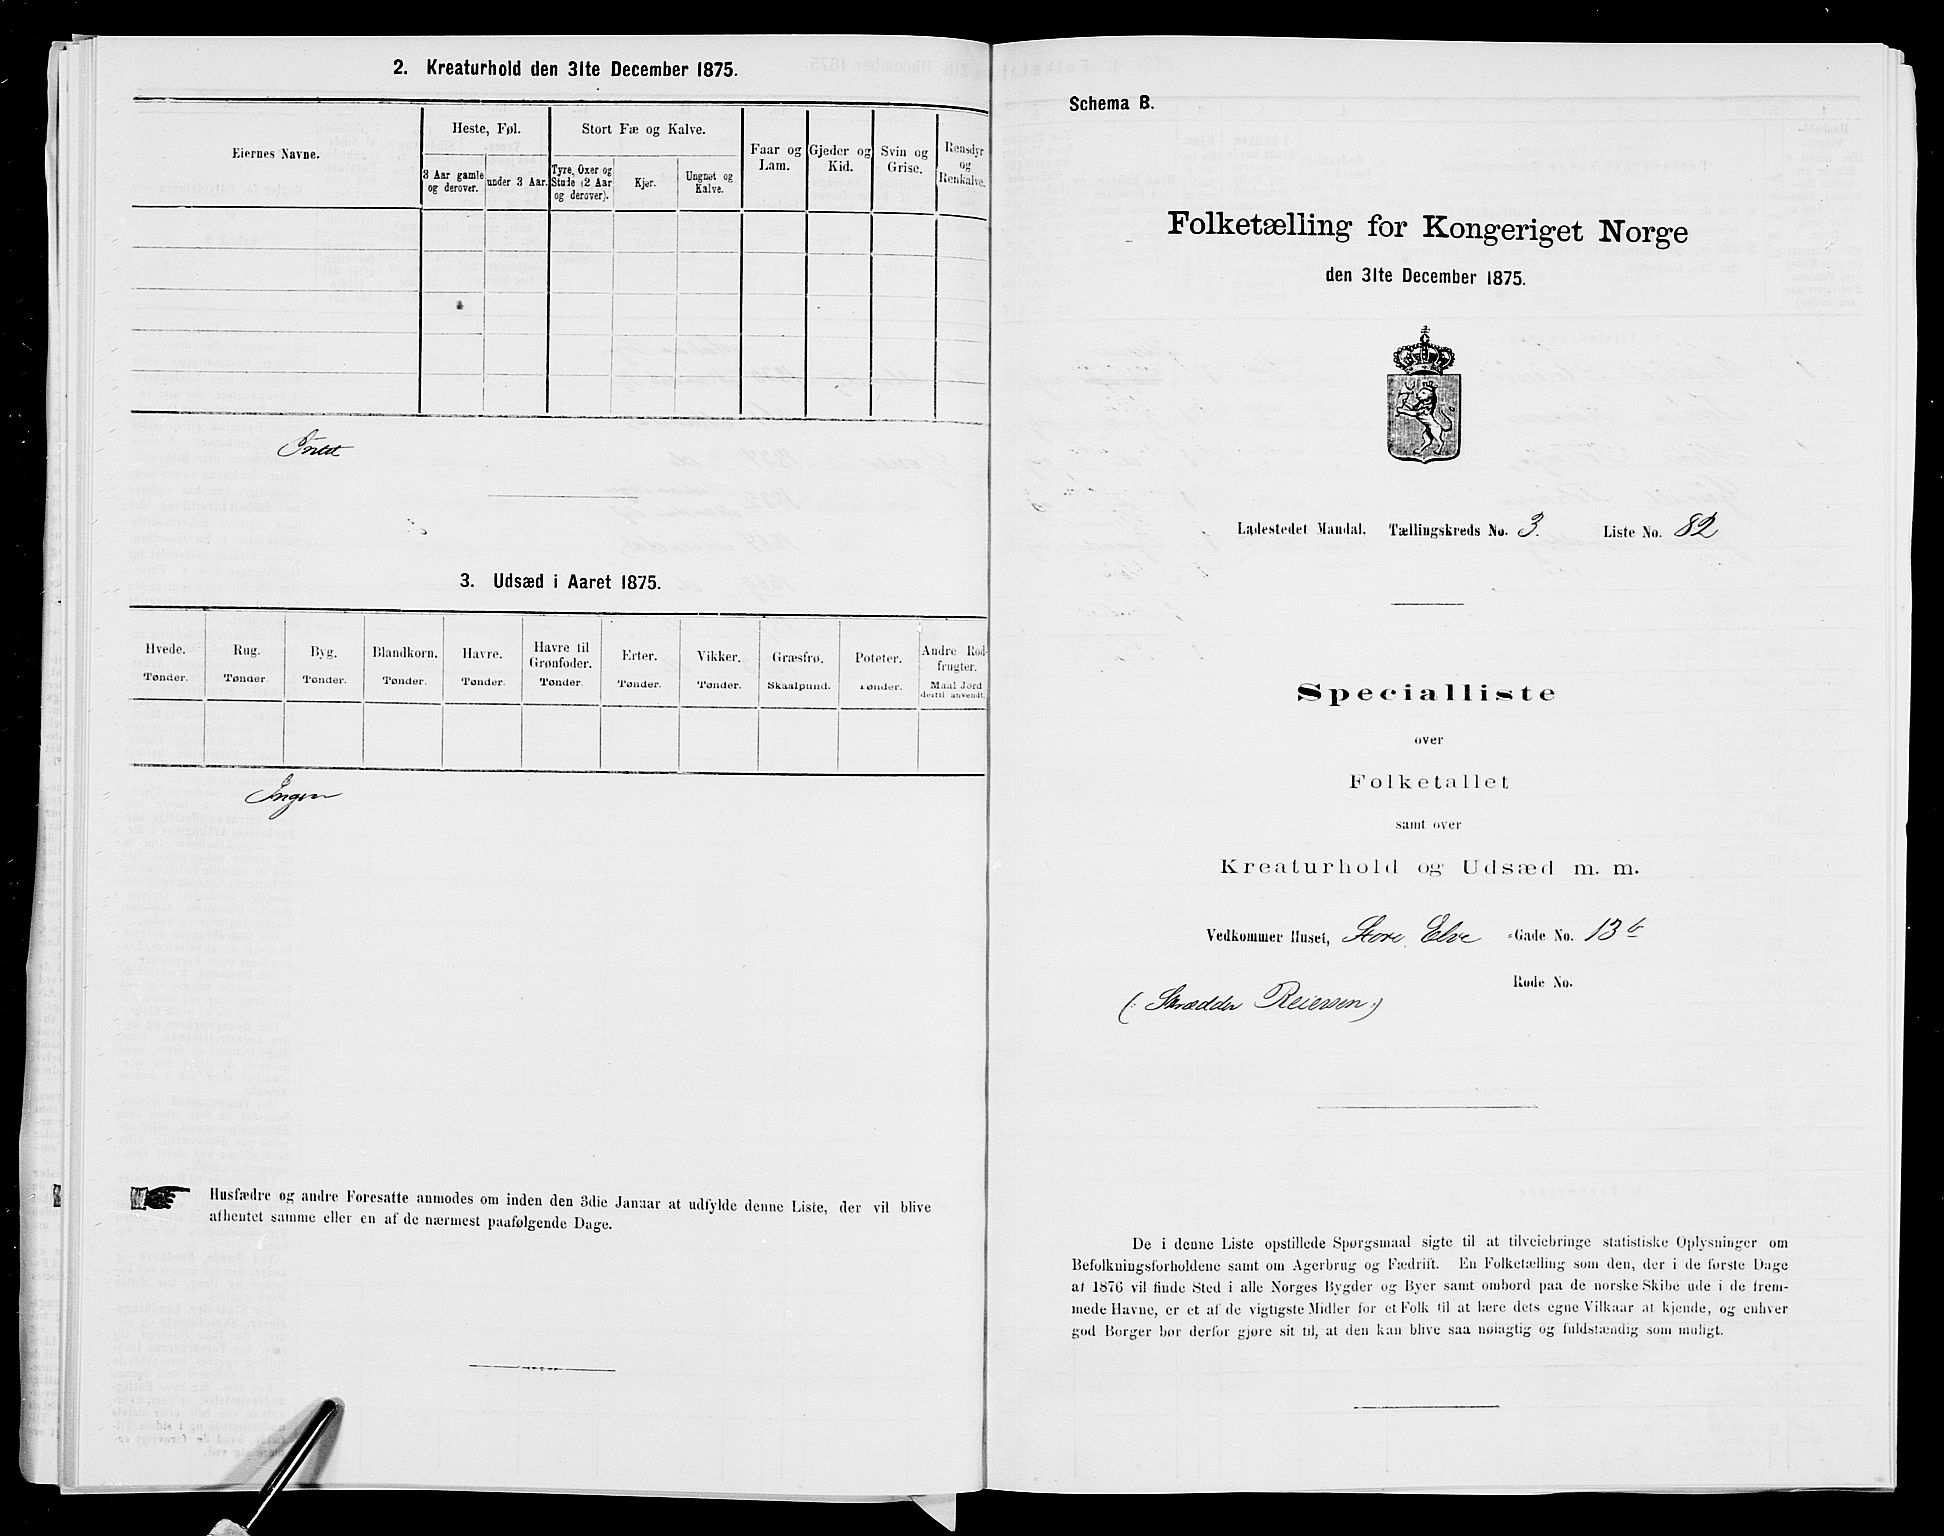 2. Kreaturhold den 31te December 1875.
Eiernes Navne.
Heste, Føl.
Stort Fæ og Kalve.
Faar og Lam.
Gjeder og Kid.
Svin og Grise.
Rensdyr og Renkalve.
3 Aar gamle og derover.
under 3 Aar.
Tyre, Oxer og Stude (2 Aar og derover).
Kjør.
Ungnøt og Kalve.
3. Udsæd i Aaret 1875.
Hvede. Tønder.
Rug. Tønder.
Byg. Tønder.
Blandkorn. Tønder.
Havre. Tønder.
Havre til Grønfoder. Tønder.
Erter. Tønder.
Vikker. Tønder.
Græsfrø. Skaalpund.
Poteter. Tønder.
Andre Rodfrugter. Maal Jord dertil anvendt.
Ingen
Husfædre og andre Foresatte anmodes om inden den 3die Januar at udfylde denne Liste, der vil blive
afhentet samme eller en af de nærmest paafølgende Dage.
Schema B.
Folketælling for Kongeriget Norge
den 31te December 1875.
Ladestedet Mandal. Tællingskreds No. 3. Liste No. 82
Specialliste
over
Folketallet
samt over
Kreaturhold og Udsæd m. m.
Vedkommer Huset, Store Elve -Gade No. 13 b
Rode No.
(: Skrædder Reiersen :)
De i denne Liste opstillede Spørgsmaal sigte til at tilveiebringe statistiske Oplysninger om
Befolkningsforholdene samt om Agerbrug og Fædrift. En Folketælling som den, der i de første Dage
af 1876 vil finde Sted i alle Norges Bygder og Byer samt ombord paa de norske Skibe ude i de frem-
mede Havne, er et af de vigtigste Midler for et Folk til at lære dets egne Vilkaar at kjende, og enhver
god Borger bør derfor gjøre sit til, at den kan blive saa nøiagtig og fuldstændig som muligt.